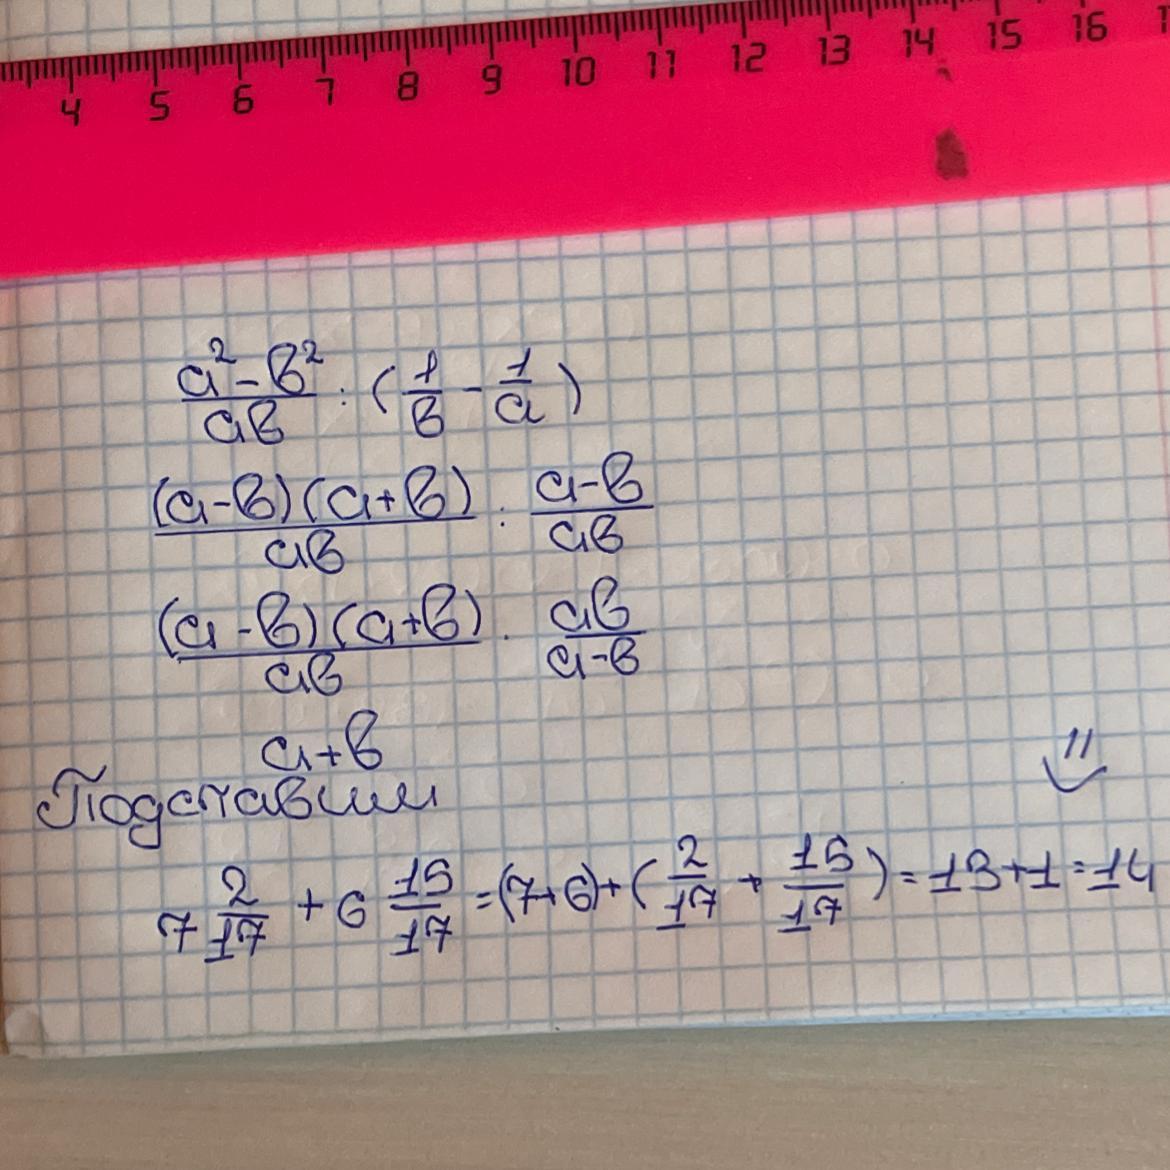 4 5 6 7 8 9 10 11 12 13 14 15 16
a² - b² / ab : (1/b - 1/a)
(a-b)(a+b) / ab : a-b / ab
(a-b)(a+b) / ab · ab / a-b
a+b
Подставим
7 2/17 + 6 15/17 = (7+6)+(2/17 + 15/17) = 13+1=14